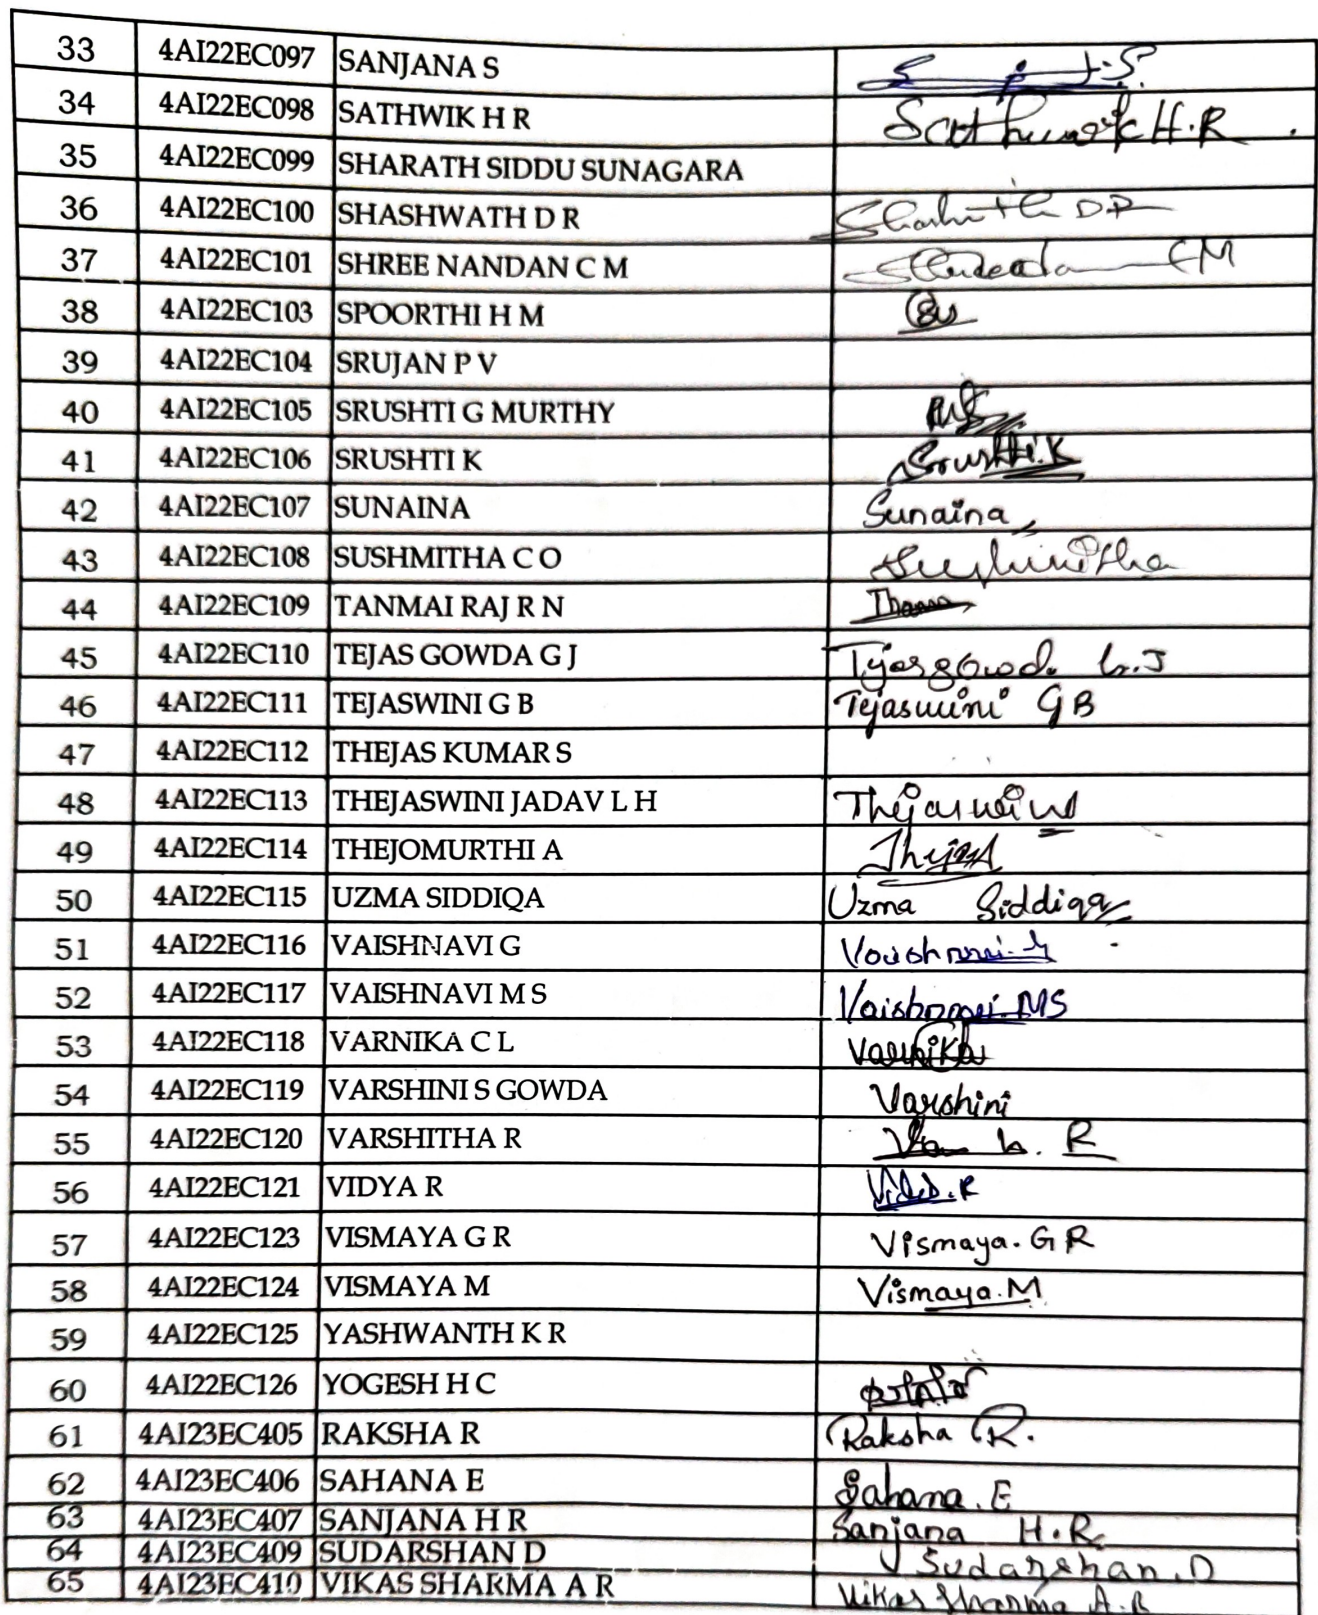 33 4AI22EC097 SANJANA S
34 4AI22EC098 SATHWIK H R Sathwik H.R
35 4AI22EC099 SHARATH SIDDU SUNAGARA
36 4AI22EC100 SHASHWATH D R D.R
37 4AI22EC101 SHREE NANDAN C M CM
38 4AI22EC103 SPOORTHI H M
39 4AI22EC104 SRUJAN P V
40 4AI22EC105 SRUSHTI G MURTHY
41 4AI22EC106 SRUSHTI K Srushti.K
42 4AI22EC107 SUNAINA Sunaina
43 4AI22EC108 SUSHMITHA C O Sushmitha
44 4AI22EC109 TANMAI RAJ R N
45 4AI22EC110 TEJAS GOWDA G J Tejasgowda G.J
46 4AI22EC111 TEJASWINI G B Tejaswini G B
47 4AI22EC112 THEJAS KUMAR S
48 4AI22EC113 THEJASWINI JADAV L H Thejaswini
49 4AI22EC114 THEJOMURTHI A
50 4AI22EC115 UZMA SIDDIQA Uzma Siddiqa
51 4AI22EC116 VAISHNAVI G Vaishnavi.G
52 4AI22EC117 VAISHNAVI M S Vaishnavi.MS
53 4AI22EC118 VARNIKA C L Varnika
54 4AI22EC119 VARSHINI S GOWDA Varshini
55 4AI22EC120 VARSHITHA R R
56 4AI22EC121 VIDYA R
57 4AI22EC123 VISMAYA G R Vismaya.G R
58 4AI22EC124 VISMAYA M Vismaya.M
59 4AI22EC125 YASHWANTH K R
60 4AI22EC126 YOGESH H C
61 4AI23EC405 RAKSHA R Raksha R.
62 4AI23EC406 SAHANA E Sahana.E
63 4AI23EC407 SANJANA H R Sanjana H.R
64 4AI23EC409 SUDARSHAN D Sudarshan.D
65 4AI23EC410 VIKAS SHARMA A R Vikas Sharma A.R